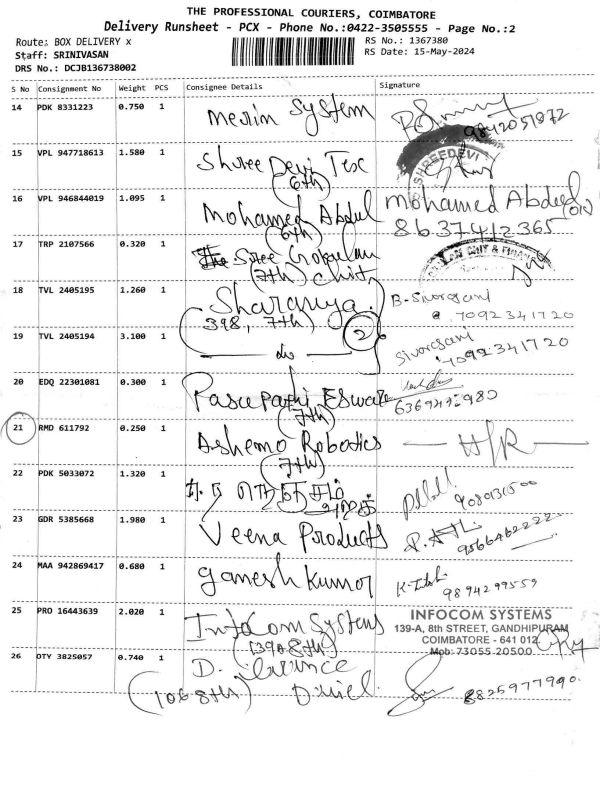 THE PROFESSIONAL COURIERS, COIMBATORE
Delivery Runsheet - PCX - Phone No.:0422-3505555 - Page No.:2
Route: BOX DELIVERY x
RS No.: 1367380
Staff: SRINIVASAN
RS Date: 15-May-2024
DRS No.: DCJB136738002
S No Consignment No Weight PCS Consignee Details Signature
14 PDK 8331223 0.750 1 Merin System
9842051972
15 VPL 947718613 1.580 1 Shree Devi Tex
(6th)
SHREEDEVI
16 VPL 946844019 1.095 1 Mohamed Abdul mohamed Abdul
(6th) 8637412365
17 TRP 2107566 0.320 1 Sree Gokulam
(7th) chits
18 TVL 2405195 1.260 1 Sharanya B-Sivarajani
(398, 7th) 7092341720
19 TVL 2405194 3.100 1 do 2 Sivarajani
7092341720
20 EDQ 22301081 0.300 1 Pasupathi Eswara
(7th) 6369492980
21 RMD 611792 0.250 1 Ashemo Robotics
(7th)
22 PDK 5033072 1.320 1
23 GDR 5385668 1.980 1 Veena Products
9566462222
24 MAA 942869417 0.680 1 Ganesh Kumar
9894299559
25 PRO 16443639 2.020 1 Infocom Systems
(139, 8th)
INFOCOM SYSTEMS
139-A, 8th STREET, GANDHIPURAM
COIMBATORE - 641 012.
Mob: 73055 20500
26 DTY 3825057 0.740 1 D.
(106 8th) Daniel.
8825977990